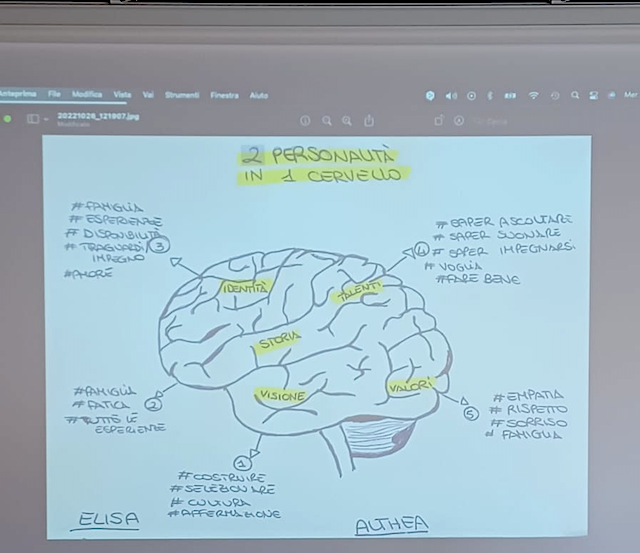 Anteprima File Modifica Vista Vai Strumenti Finestra Aiuto
Mer
20221026_121907.jpg
2 PERSONALITÀ
IN 1 CERVELLO
#FAMIGLIA
# ESPERIENZE
# DISPONIBILITÀ
# TRAGUARDI/
IMPEGNO
#AMORE
3
# SAPER ASCOLTARE
# SAPER SUONARE
# SAPER IMPEGNARSI
# VOGLIA
#FARE BENE
4
IDENTITÀ
TALENTI
STORIA
VISIONE
VALORI
#FAMIGLIA
#FATICA
#TUTTE LE
ESPERIENZE
2
# EMPATIA
# RISPETTO
# SORRISO
# FAMIGLIA
5
1
# COSTRUIRE
# SELEZIONARE
# CULTURA
#AFFERMAZIONE
ELISA
ALTHEA